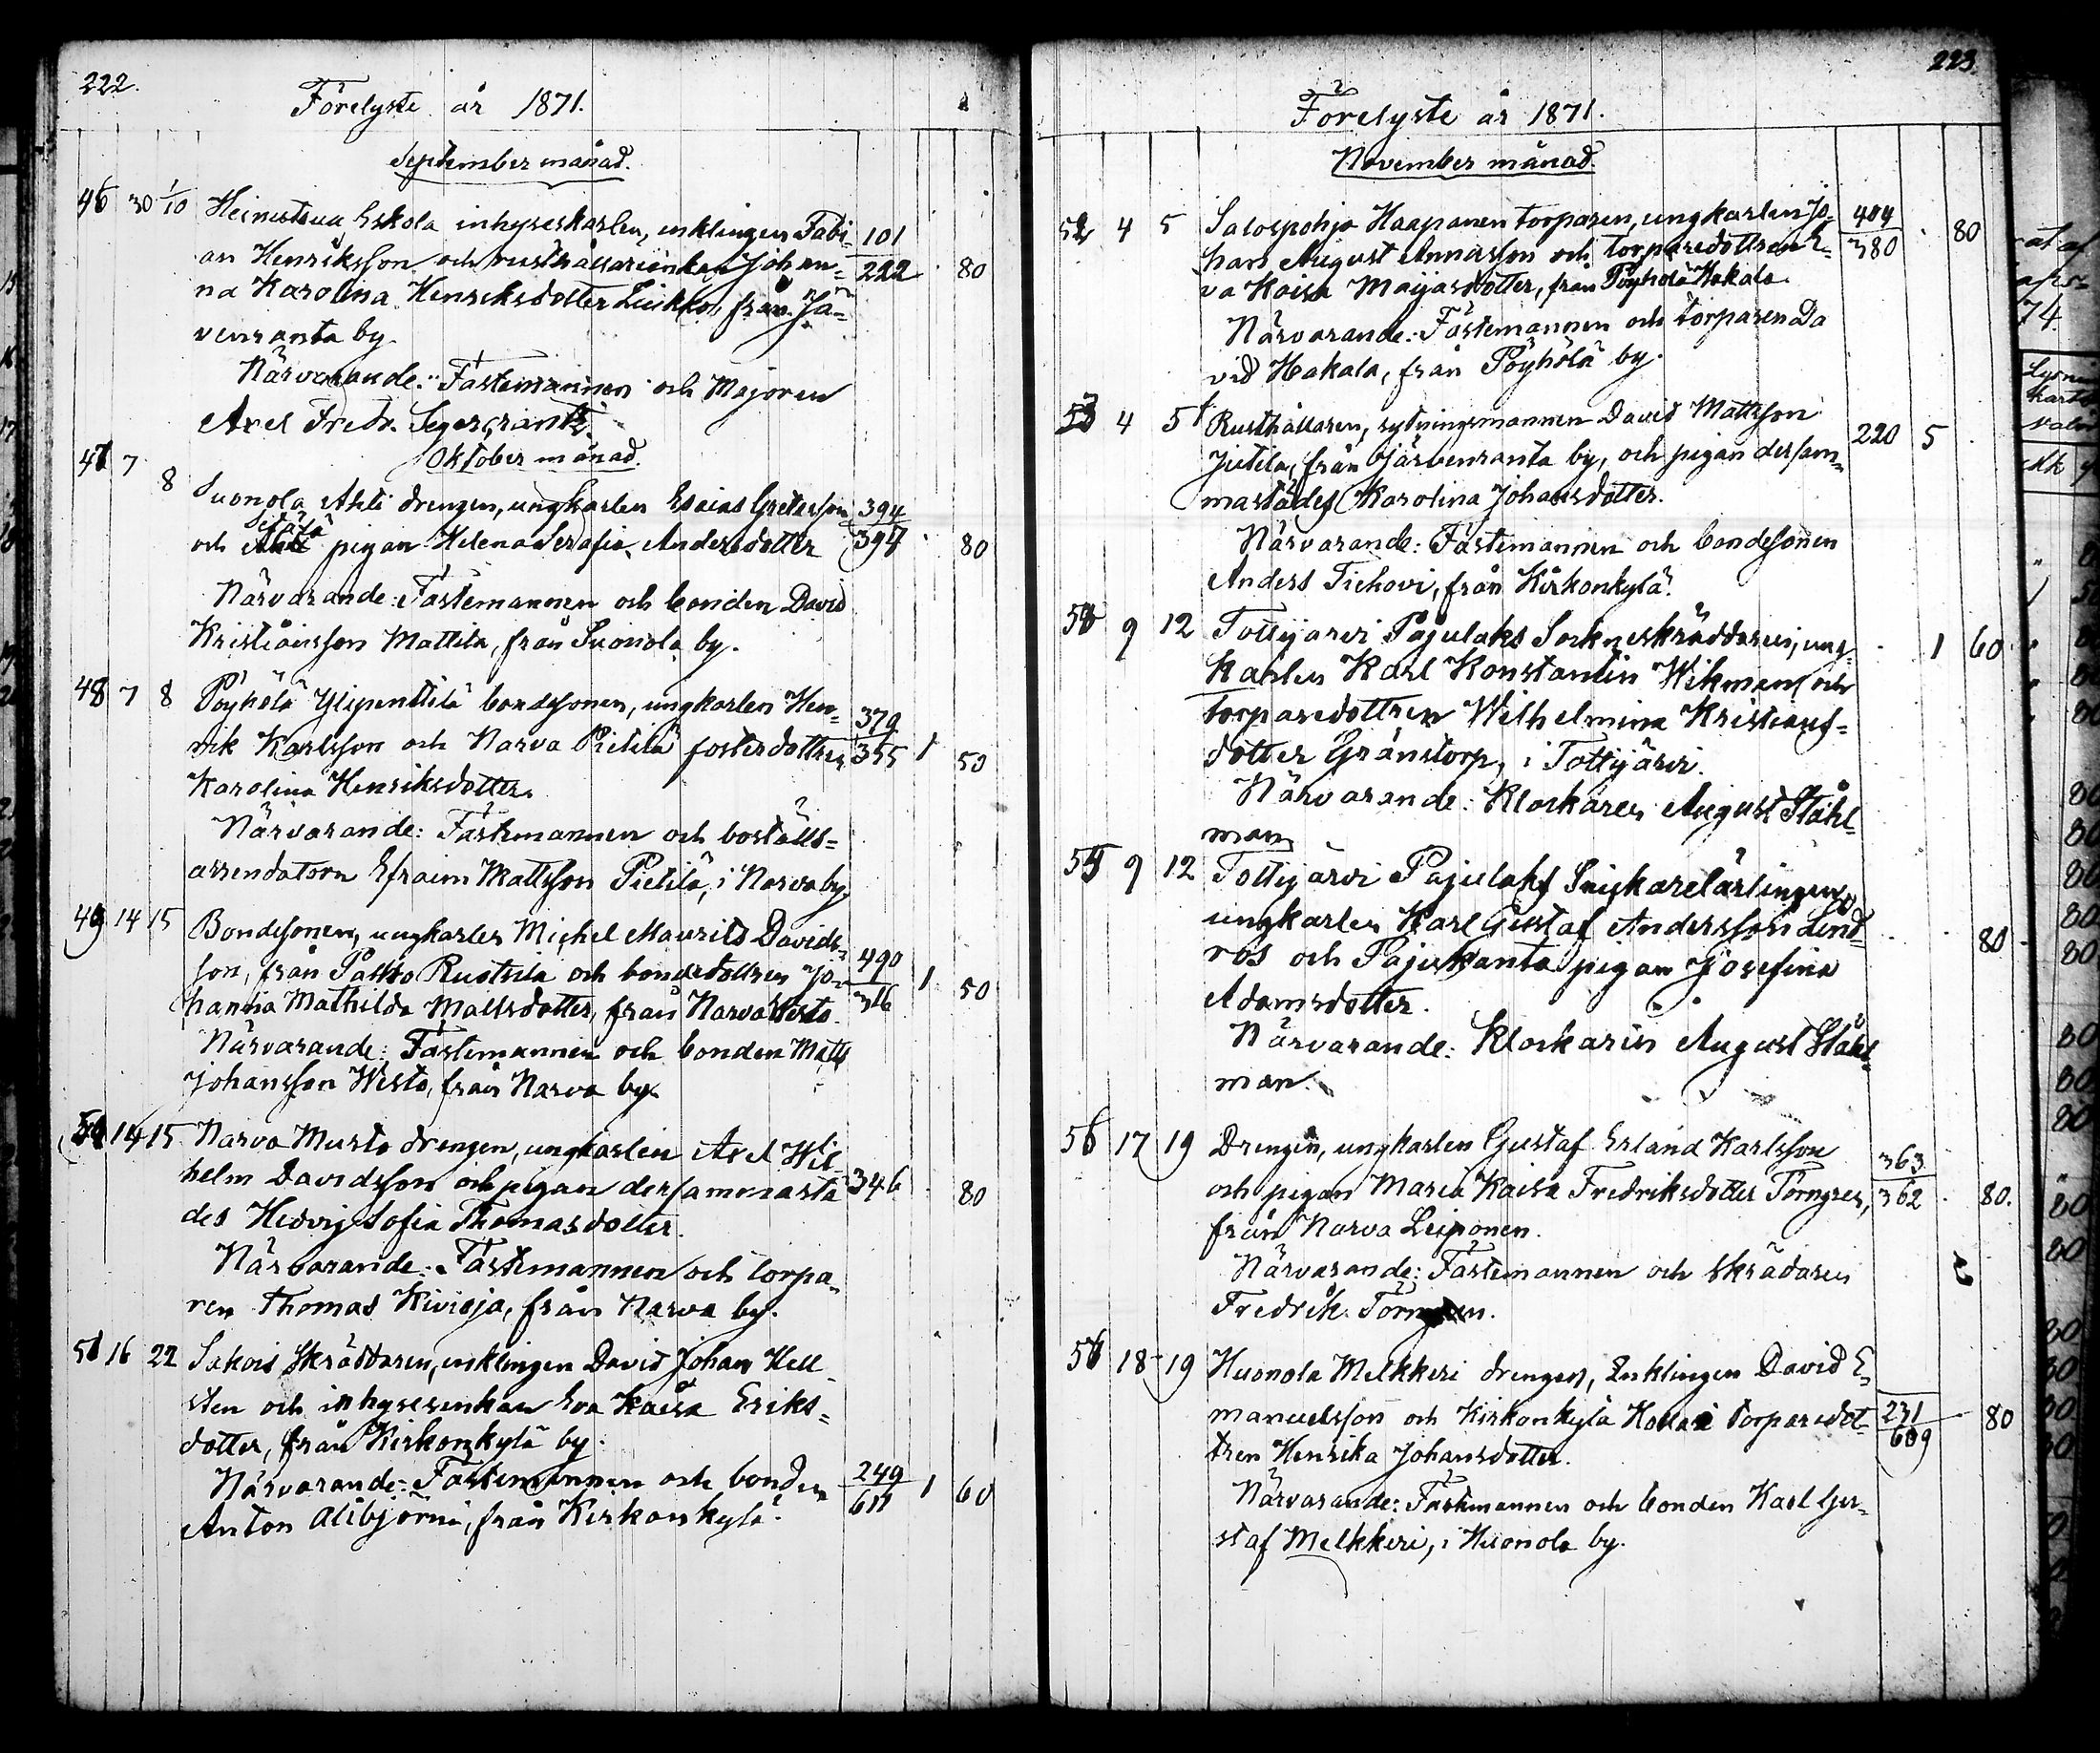 222.
Förelyste år 1871.
September månad.
46 30 1/10 Heinustaua Eskola inhyseskarlen, enklingen Fabi- 101
an Henriksson och rusthållarienkan Johan- 222 80
na Karolina Henriksdotter Liukko, från Jä-
venranta by.
Närvarande: Fästemannen och Majoren
Axel Fredr.
Oktober månad.
47 7 8 Suonola Ahti drengen, ungkarlen Esaias Gretasson 394
och pigan Helena Serafia Andersdotter 394 80
Närvarande: Fästemannen och bonden David
Kristiansson Mattila, från Suonola by.
48 7 8 Pöyhölä Ylipenttilä bondesonen, ungkarlen Hen- 379
rik Karlsson och Narva Pietilä fosterdottren 355 1 50
Karolina Henriksdotter.
Närvarande: Fästemannen och boställs-
arrendatorn Efraim Mattsson Pietilä, i Narva by.
49 14 15 Bondesonen, ungkarlen Michel Maurits Davids- 490
son, från Palho Rustila och bondedottren Jo- 316 1 50
hanna Mathilda Mattsdotter, från Narva Westo.
Närvarande: Fästemannen och bonden Matts
Johansson Westo, från Narva by.
50 14 15 Narva Musto drengen, ungkarlen Axel Wil-
helm Davidsson och pigan dersammastä- 346 80
des Hedvig Sofia Thomasdotter.
Närvarande: Fästemannen och torpa-
ren Thomas Kivioja, från Narva by.
51 16 22 Sakois Skräddaren, enklingen David Johan Hell-
sten och inhysesenkan Eva Kaisa Eriks-
dotter, från Kirkonkylä by.
Närvarande: Fästemannen och bonden 249
Anton Alibjörni, från Kirkonkylä. 611 1 60
223.
Förelyste år 1871.
November månad.
52 4 5 Salospohja Haapanen torparen, ungkarlen Jo- 404
han August Annasson och torparedottren E- 380 80
va Kaisa Maijasdotter, från Pöyhölä Hakala.
Närvarande: Fästemannen och torparen Da
vid Hakala, från Pöyhölä by.
53 4 5 Rusthållaren, sytningsmannen David Mattsson
Jutila, från Järvenranta by, och pigan dersam- 220 5
mastädes Karolina Johansdotter.
Närvarande: Fästemannen och bondesonen
Anders Tiehovi, från Kirkonkylä.
54 9 12 Tottijärvi Pajulaks Sockneskräddaren, ung- 1 60
karlen Karl Konstantin Wikman och
torparedottren Wilhelmina Kristians-
dotter Gränstorp, i Tottijärvi.
Närvarande: Klockaren August Ståhl-
man
55 9 12 Tottijärvi Pajulaks Snickarelärlingen,
ungkarlen Karl Gustaf Andersson Lind-
ros och Pajukanta pigan Josefina 80
Adamsdotter.
Närvarande: Klockaren August Ståhl-
man.
56 17 19 Drengen, ungkarlen Gustaf Erland Karlsson 363
och pigan Maria Kaisa Fredriksdotter Törngren, 362 80.
från Narva Leiponen.
Närvarande: Fästemannen och Skrädaren
Fredrik Törngren.
18 19 Huonola Melkkeri drengen, Enklingen David E-
manuelsson och Kirkonkylä torparedot- 231 80
tren Henrika Johansdotter. 609
Närvarande: Fästemannen och bonden Karl Gu-
staf Melkkeri, i Huonola by.
74.